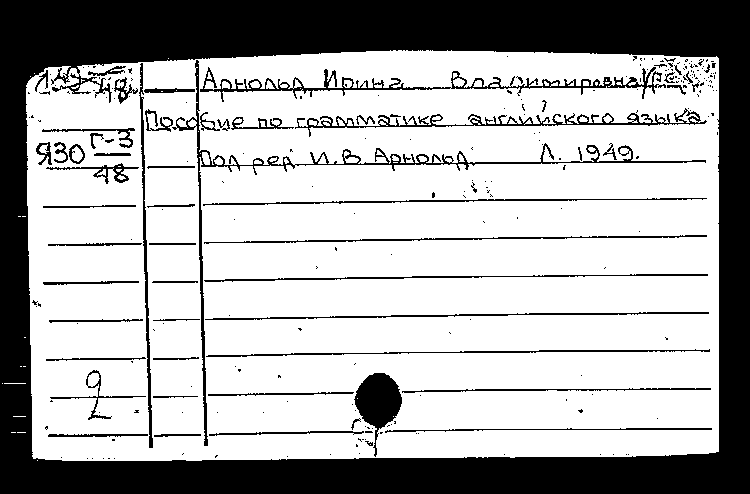 Арнольд, Ирина Владимировна (ред.
48
Пособие по грамматике английского языка
Я30 Г-3
48
Под ред. И.В. Арнольд. Л., 1949.
2